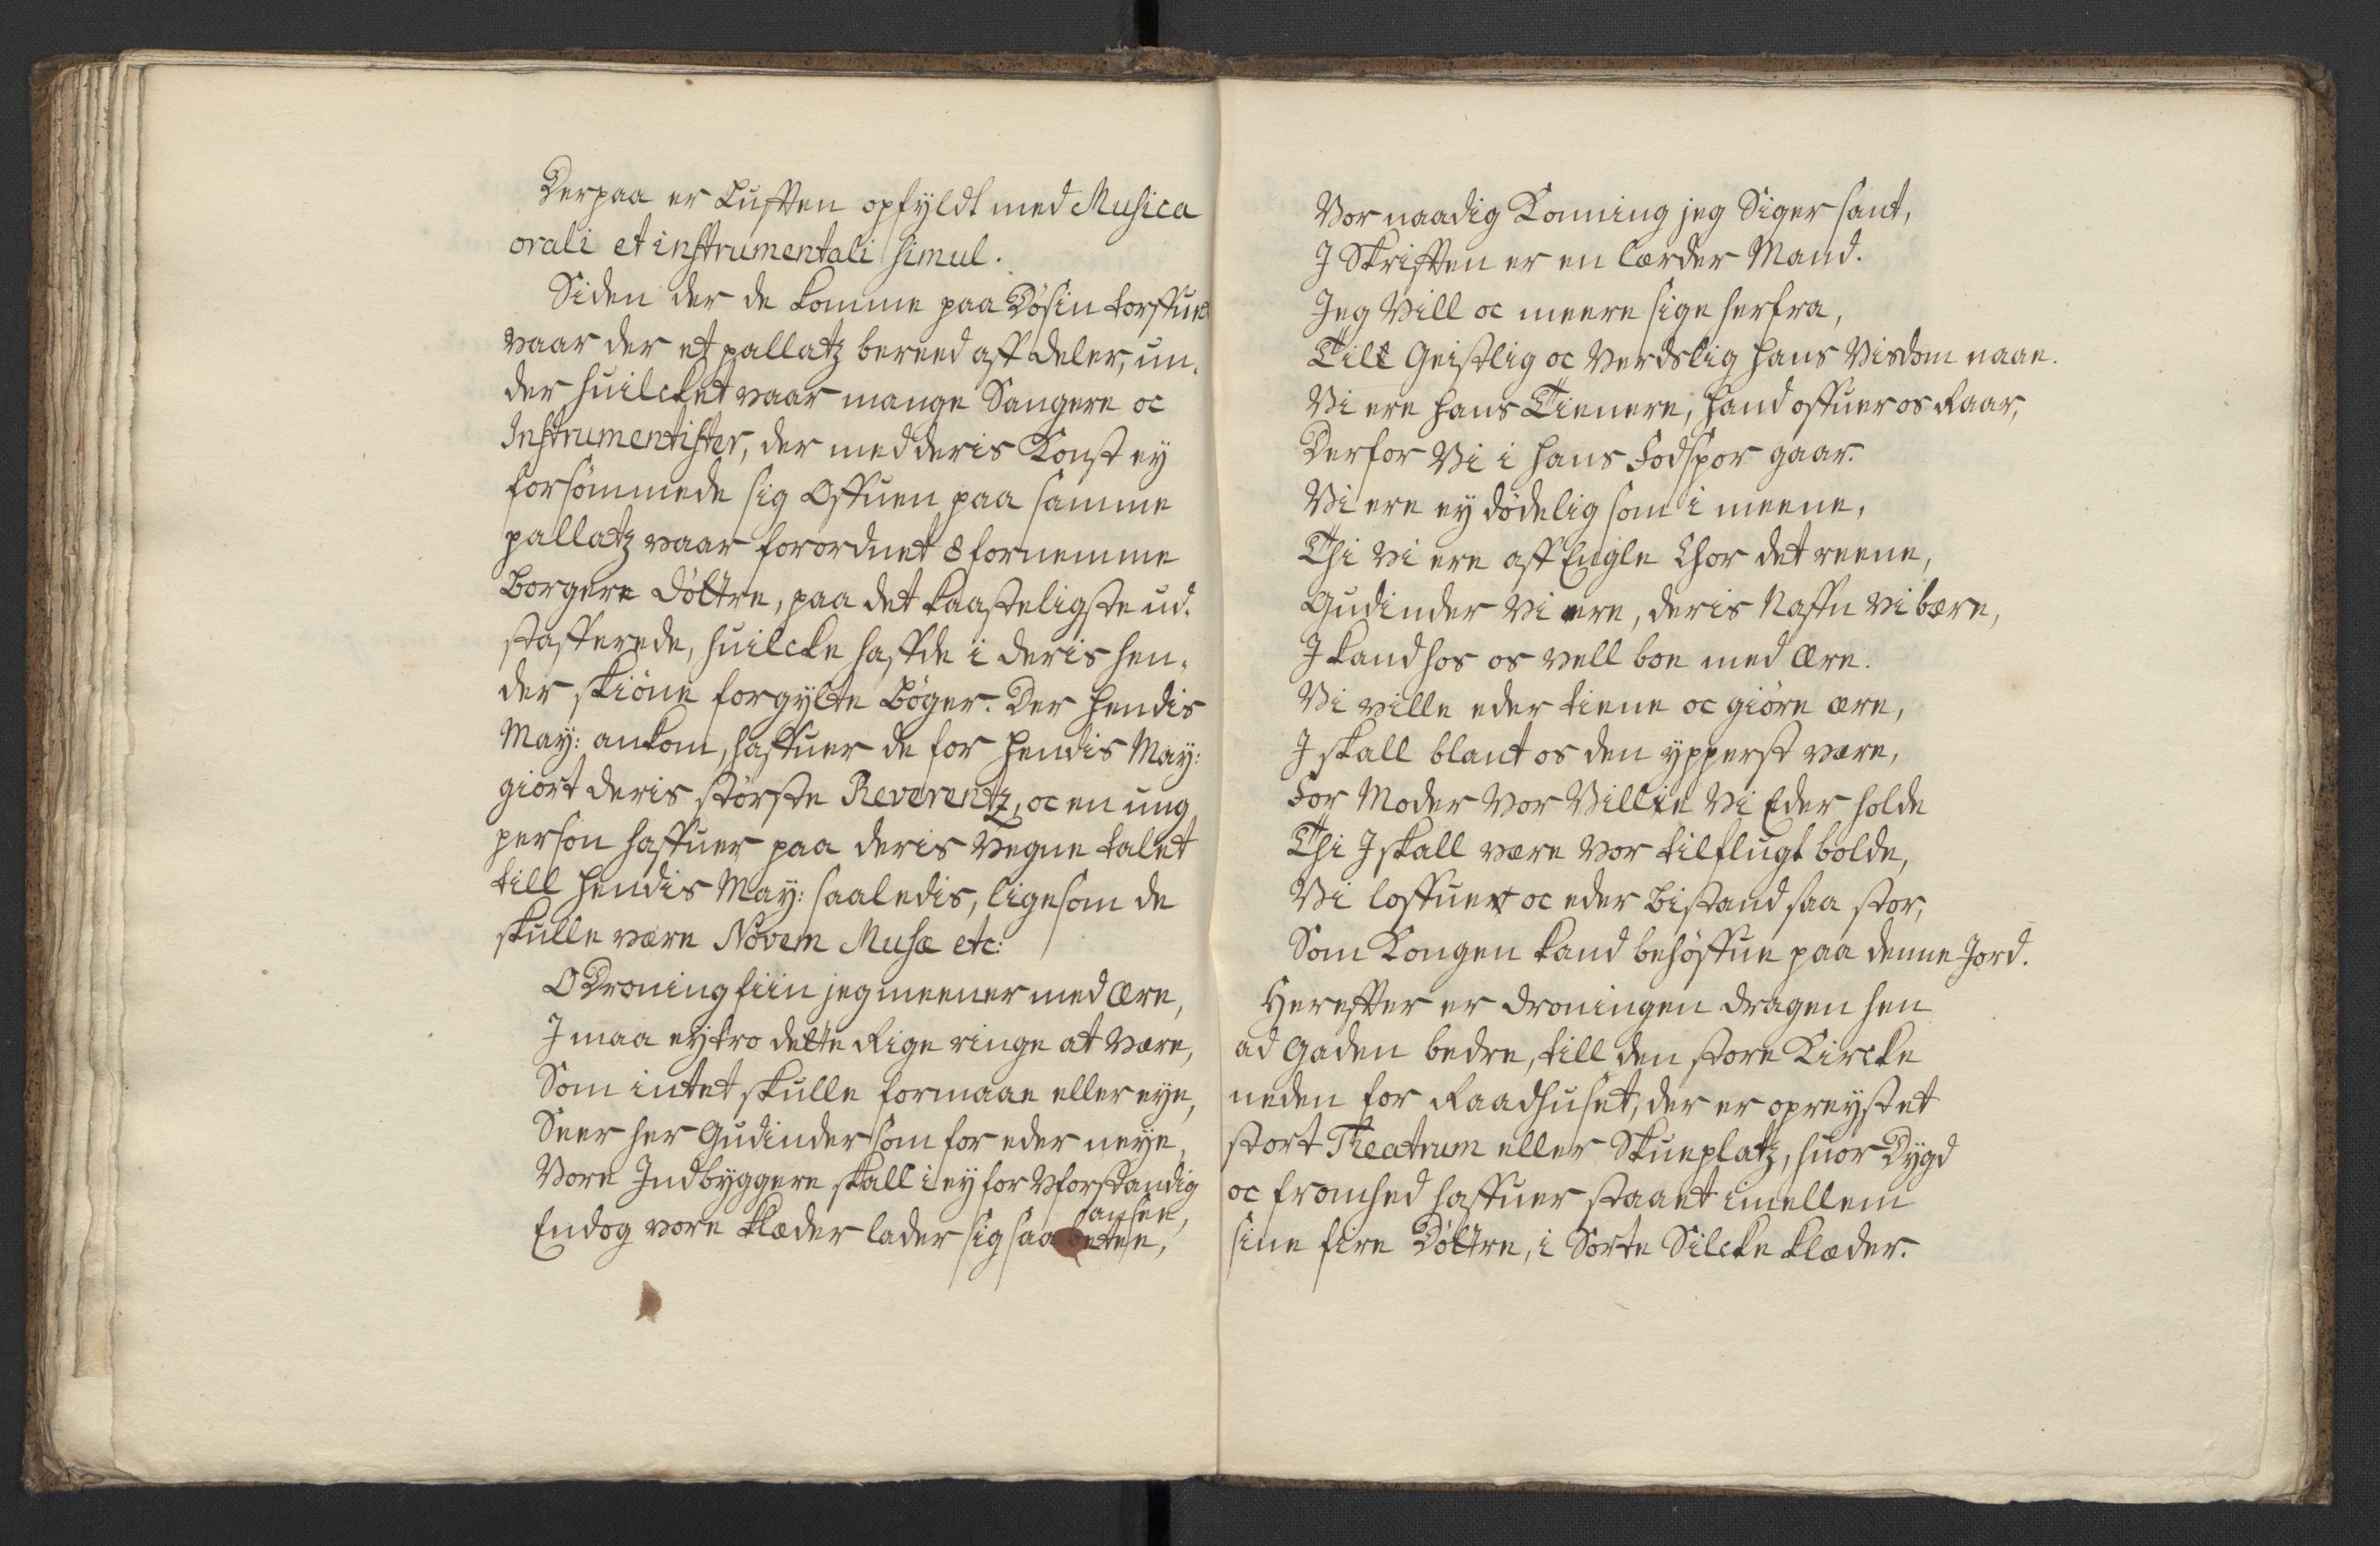 Derpaa er Lufften opfyldt med Musica
orali et instrumentali simul.
Siden der de komme paa Dösin torffue
vaar der et pallatz bereed aff deler, un-
der huilcket vaar mange Sangere oc
Instrumentister, der med deris Konst ey
forsömmede sig Offuen paa samme
pallatz vaar forordnet 8 fornemme
Borgere Döttre, paa det kaasteligste ud-
stafferede, huilcke haffde i deris hen-
der skiöne forgylte Böger. Der Hendis
May: ankom, haffuer de for Hendis May:
giort deris störste Reverentz, oc en ung
person haffuer paa deris Vegne talet
till Hendis May: saaledis, ligesom de
skulle være Novem Musæ etc:
O Droning fiin jeg meener med Ære,
J maa ey tro dette Rige ringe at være,
Som intet skulle formaae eller eye,
Seer her Gudinder som for eder neye,
Vore Indbyggere skall i ey for Vforstandig
ansee,
Endog vore Klæder lader sig saa betee,
Vor naadig Konning jeg Siger sant,
J Skrifften er en lærder Mand.
Jeg Vill oc meere sige herfra,
Till Geistlig oc Verdslig Hans Visdom naae.
Vi ere Hans Tienere, Hand offuer os Raar,
Derfor Vi i Hans Fodspor gaar.
Vi ere ey dödelig som i meene,
Thi vi ere aff Engle Chor det reene,
Gudinder vi ere, deris Naffn vi bære,
J kand hos os vell boe med Ære.
Vi ville eder tiene oc giöre ære,
J skall blant os den ypperst være,
For Moder vor Villie vi Eder holde
Thi J skall være vor tilflugt bolde,
Vi loffuer oc eder Bistand saa stor,
Som Kongen kand behöffue paa denne Jord.
Hereffter er Droningen dragen hen
ad Gaden bedre, till den store Kircke
neden for Raadhuset, der er opreystet
stort Theatrum eller Skueplatz, huor Dygd
oc fromhed haffuer staaet imellem
sine fire Döttre, i Sorte Silcke klæder.